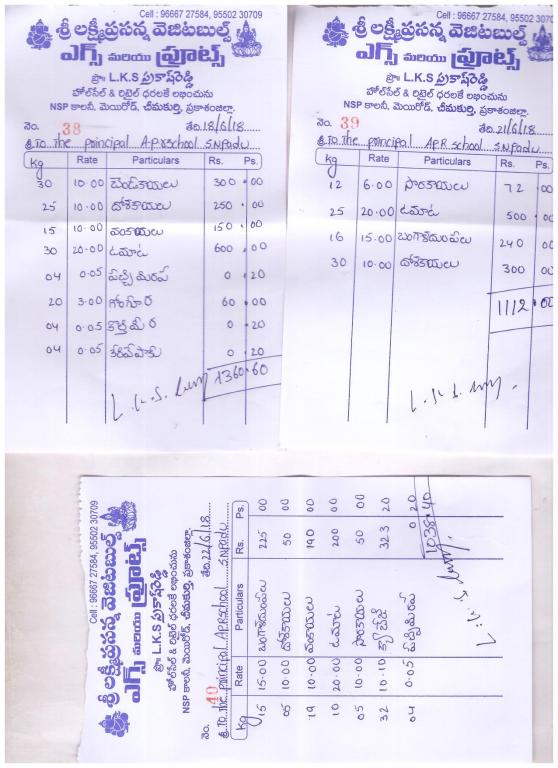 Cell : 96667 27584, 95502 30709
శ్రీ లక్ష్మీప్రసన్న వెజిటబుల్స్
ఎగ్స్ మరియు ఫ్రూట్స్
ప్రొ॥ L.K.S ప్రకాష్‌రెడ్డి
హోల్‌సేల్ & రిటైల్ ధరలకే లభించును
NSP కాలనీ, మెయిన్‌రోడ్, చీమకుర్తి, ప్రకాశంజిల్లా.
నెం. 38 తేది.18/6/18
శ్రీ To the principal A.P.R school S.N.Padu
Kg Rate Particulars Rs. Ps.
30 10.00 బెండకాయలు 300.00
25 10.00 దోశకాయలు 250.00
15 10.00 వంకాయలు 150.00
30 20.00 టమాట 600.00
04 0.05 పచ్చిమిరప 0.20
20 3.00 గోంగూర 60.00
04 0.05 కొత్తిమీర 0.20
04 0.05 కరివేపాకు 0.20
1360.60
Cell : 96667 27584, 95502 30709
శ్రీ లక్ష్మీప్రసన్న వెజిటబుల్స్
ఎగ్స్ మరియు ఫ్రూట్స్
ప్రొ॥ L.K.S ప్రకాష్‌రెడ్డి
హోల్‌సేల్ & రిటైల్ ధరలకే లభించును
NSP కాలనీ, మెయిన్‌రోడ్, చీమకుర్తి, ప్రకాశంజిల్లా.
నెం. 39 తేది.21/6/18
శ్రీ To the principal APR school S.N.Padu
Kg Rate Particulars Rs. Ps.
12 6.00 సొరకాయలు 72.00
25 20.00 టమాట 500.00
16 15.00 బంగాళదుంపలు 240.00
30 10.00 దోశకాయలు 300.00
1112.00
Cell : 96667 27584, 95502 30709
శ్రీ లక్ష్మీప్రసన్న వెజిటబుల్స్
ఎగ్స్ మరియు ఫ్రూట్స్
ప్రొ॥ L.K.S ప్రకాష్‌రెడ్డి
హోల్‌సేల్ & రిటైల్ ధరలకే లభించును
NSP కాలనీ, మెయిన్‌రోడ్, చీమకుర్తి, ప్రకాశంజిల్లా.
నెం. 40 తేది.22/6/18
శ్రీ To the principal A.P.R school S.N.Padu
Kg Rate Particulars Rs. Ps.
15 15.00 బంగాళదుంపలు 225 00
05 10.00 దోశకాయలు 50 00
19 10.00 వంకాయలు 190 00
10 20.00 టమాట 200 00
05 10.00 సొరకాయలు 50 00
32 10.10 క్యాబేజి 323 20
04 0.05 పచ్చిమిరప 0 20
1038.40